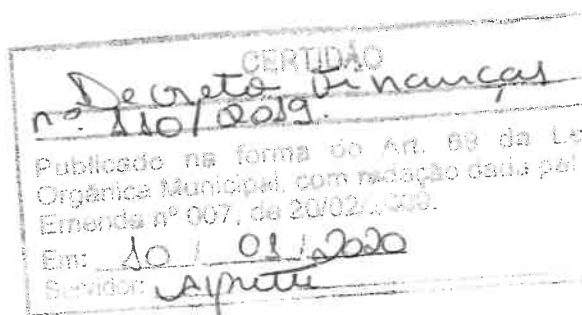 CERTIDÃO
Decreto Finanças
nº. 110/2019.
Publicado na forma do Art. 69 da Le
Orgânica Municipal, com redação dada pel
Emenda nº 007, de 20/02/
Em: 10 / 01 / 2020
Servidor: